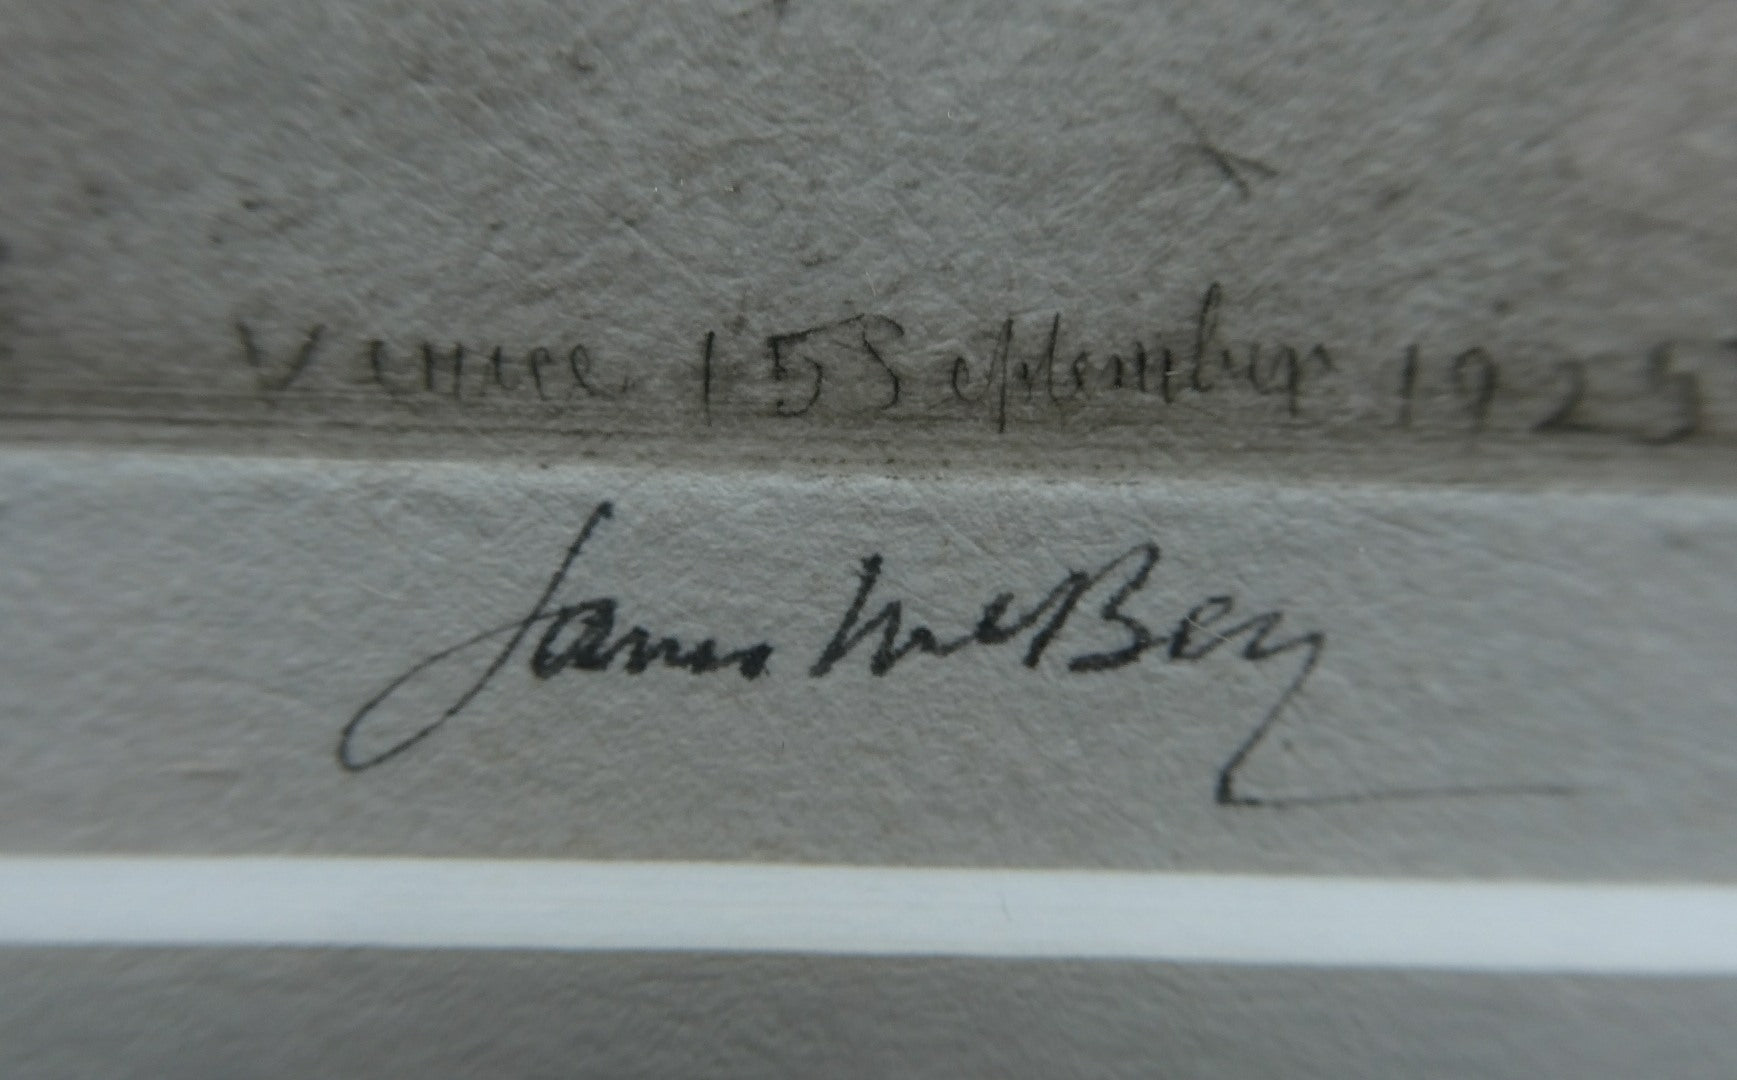 Venice. 15 September 1925
James McBey